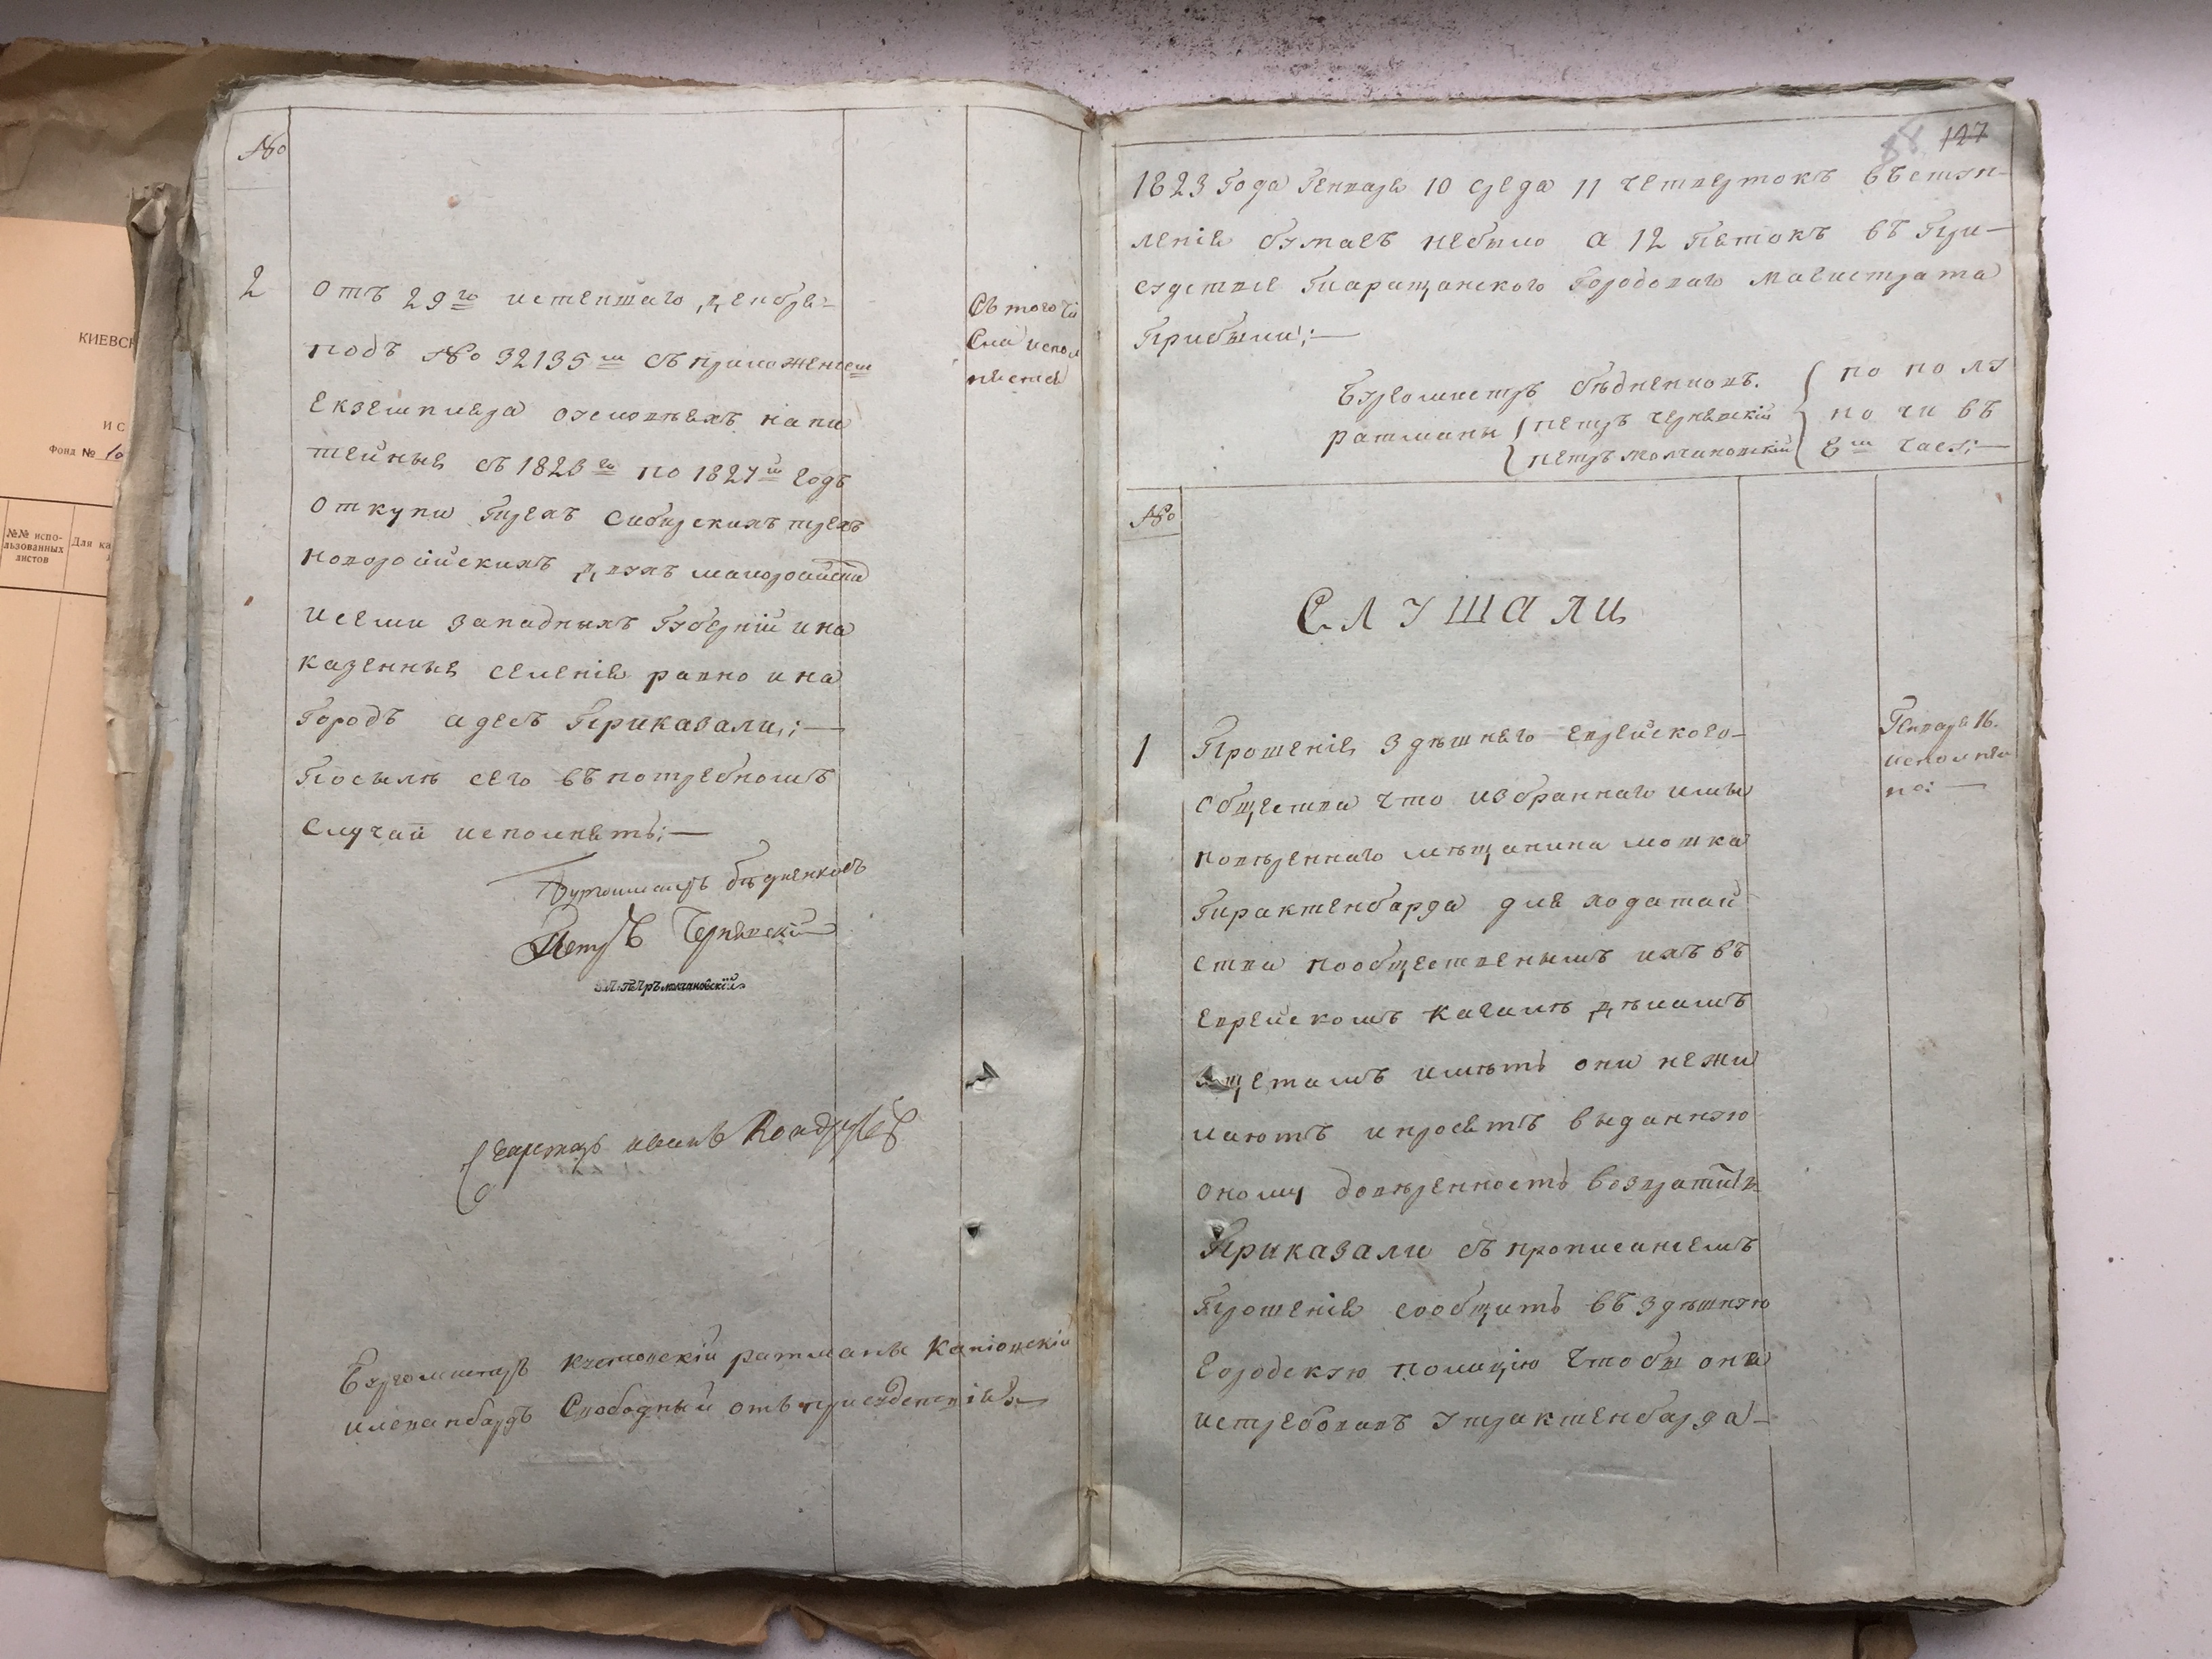 КИЕВСК
ИС
Фонд № 10
№№ испо-
льзованных
листов
Для ка
№
2
Отъ 29го истекшаго декабря
подъ № 32135м съ приложенiем
екземпляра о условiяхъ на пи
тейные съ 1823го по 1827й годъ
откупи трехъ Сибирскихъ трехъ
новоросiйскихъ двухъ малоросiйски
и семи западныхъ Губернiй и на
казенные селенiя равно и на
городъ адесъ Приказали;—
Посылъ сего въ потребномъ
случаи исполнять;—
Съ того чи
сла испол
няется
Бургомистръ бедненковъ
Петръ Чернявскiй
Секретарь иванъ
Бургомистръ ратманы Канiовскiй
Свободный отъ присудствiя
147
1823 Года Генваря 10 среда 11 четвертокъ въступ-
ленiя бумагъ небыло а 12 Пятокъ въ При-
судствiе Таращанского Городоваго магистрата
Прибыли;—
Бургомистръ бѣдненковъ.
ратманы
петръ чернявскiй
петръ молчановскiй
по полу
ночи въ
8м часу;—
№
СЛУШАЛИ
1
Прошенiе здѣшняго еврейского
общества что избраннаго ими
повѣреннаго мѣщанина мошка
Трактенбарда для ходатай
ства пообщественымъ ихъ въ
еврейскомъ кагалѣ дѣламъ
щетамъ имѣть они нежи
лаютъ и просятъ выданную
оному довѣренность возвратить
Приказали съ прописанiемъ
Прошенiя сообщить въ здѣшнюю
городскую полицiю чтобы она
истребовавъ у трактенбарда
Генваря 16.
исполнен
но:—